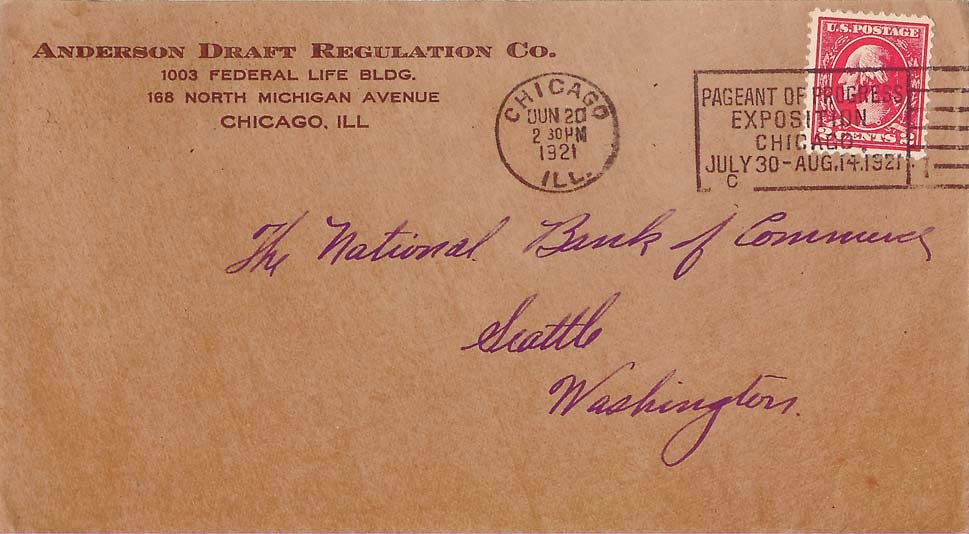 ANDERSON DRAFT REGULATION CO.
1003 FEDERAL LIFE BLDG.
168 NORTH MICHIGAN AVENUE
CHICAGO, ILL
CHICAGO
JUN 20
2 30 PM
1921
ILL.
U.S. POSTAGE
2 CENTS 2
PAGEANT OF PROGRESS
EXPOSITION
CHICAGO,
JULY 30-AUG.14.1921
C
The National Bank of Commerce
Seattle
Washington.